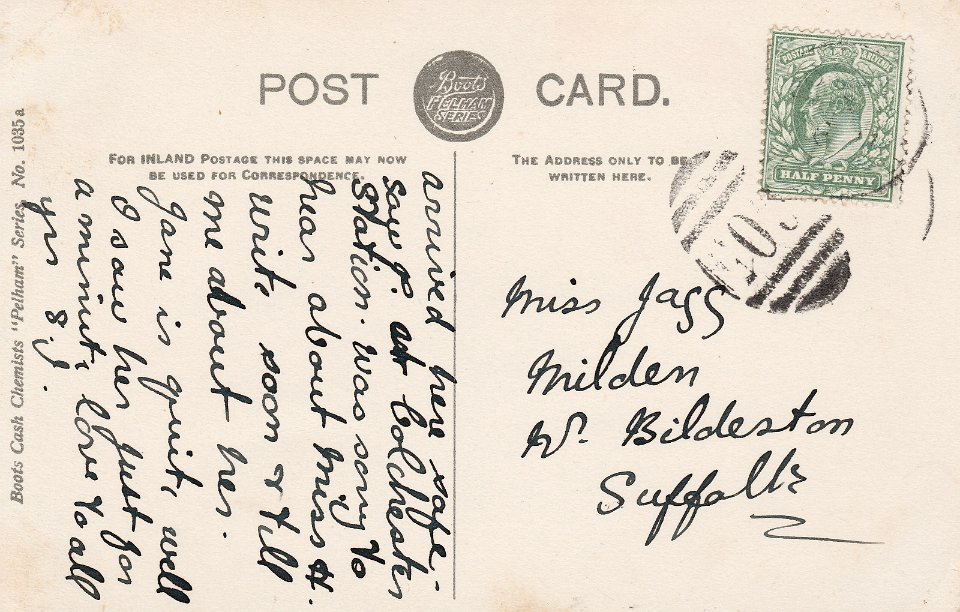 POST CARD.
Boots
PELHAM
SERIES
FOR INLAND POSTAGE THIS SPACE MAY NOW
BE USED FOR CORRESPONDENCE.
THE ADDRESS ONLY TO BE
WRITTEN HERE.
POSTAGE REVENUE
HALF PENNY
Boots Cash Chemists "Pelham" Series No. 1035 a
arrived here safe-
saw J. at Colchester
Station. was sorry to
hear about Miss H.
write soon & tell
me about her.
Jane is quite well
I saw her just for
a minute love to all
yrs S.J.
Miss Jagg
Milden
Nr. Bildeston
Suffolk